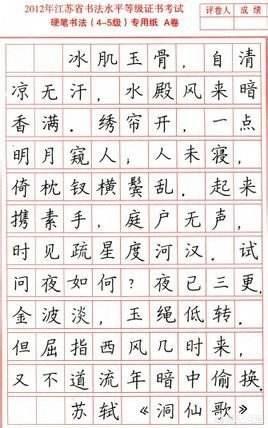 2012年江苏省书法水平等级证书考试
硬笔书法（4-5级）专用纸 A卷
评卷人 成绩
冰肌玉骨，自清
凉无汗，水殿风来暗
香满．绣帘开，一点
明月窥人，人未寝，
倚枕钗横鬓乱．起来
携素手，庭户无声，
时见疏星度河汉．试
问夜如何？夜已三更．
金波淡，玉绳低转．
但屈指西风几时来，
又不道流年暗中偷换．
苏轼《洞仙歌》